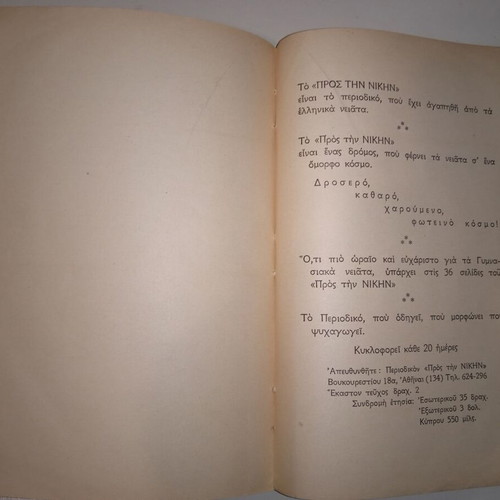 Τὸ «ΠΡΟΣ ΤΗΝ ΝΙΚΗΝ»
εἶναι τὸ περιοδικό, ποὺ ἔχει ἀγαπηθῆ ἀπὸ τὰ
ἑλληνικὰ νειᾶτα.
Τὸ «Πρὸς τὴν ΝΙΚΗΝ»
εἶναι ἕνας δρόμος, ποὺ φέρνει τὰ νειᾶτα σ' ἕνα
ὄμορφο κόσμο.
Δροσερό,
καθαρό,
χαρούμενο,
φωτεινὸ κόσμο!
Ὅ,τι πιὸ ὡραῖο καὶ εὐχάριστο γιὰ τὰ Γυμνα-
σιακὰ νειᾶτα, ὑπάρχει στὶς 36 σελίδες τοῦ
«Πρὸς τὴν ΝΙΚΗΝ»
Τὸ Περιοδικό, ποὺ ὁδηγεῖ, ποὺ μορφώνει ποὺ
ψυχαγωγεῖ.
Κυκλοφορεῖ κάθε 20 ἡμέρες
Ἀπευθυνθῆτε : Περιοδικὸν «Πρὸς τὴν ΝΙΚΗΝ»
Βουκουρεστίου 18α, Ἀθῆναι (134) Τηλ. 624-296
Ἕκαστον τεῦχος δραχ. 2
Συνδρομὴ ἐτησία: Ἐσωτερικοῦ 35 δραχ.
Ἐξωτερικοῦ 3 δολ.
Κύπρου 550 μίλς.